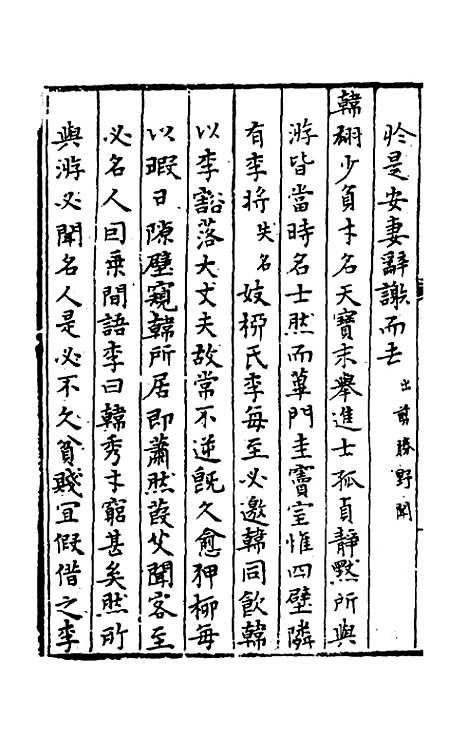 於是安妻辭謝而去出剪勝野聞
韓翃少負才名天寶末舉進士孤貞静黙所與
游皆當時名士然而蓽門圭竇室惟四壁隣
有李將失名妓桞氏李每至必邀韓同飲韓
以李豁落大丈夫故常不逆旣久愈狎柳每
以暇日隙壁窺韓所居即蕭然葭艾聞客至
必名人囙乗間語李曰韓秀才窮甚矣然所
與游必聞名人是必不久貧賤宜假借之李